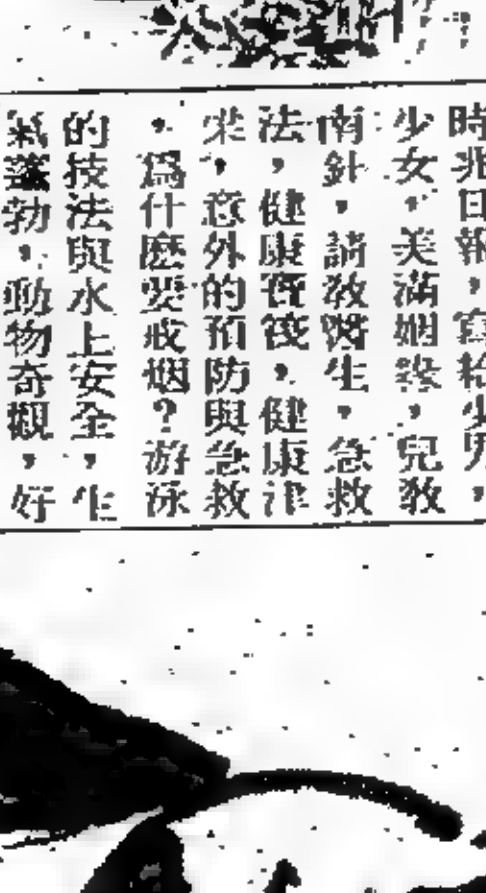 時兆日報，寫給少男，
少女，美滿姻緣，兒教
南針，請教醫生，急救
法，健康寶筏，健康津
梁，意外的預防與急救
，爲什麽要戒烟？游泳
的技法與水上安全，生
氣蓬勃，動物奇觀，好